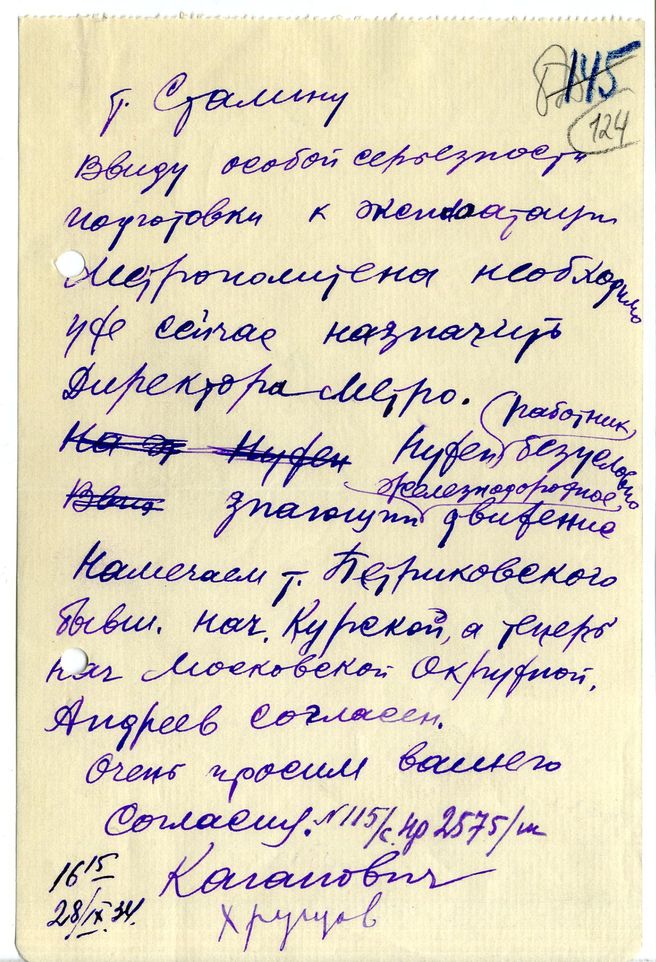 145
124
т. Сталину
Ввиду особой серьезности
подготовки к эксплоатации
Метрополитена необходимо
уже сейчас назначить
Директора Метро.
работник
На Нужен Нужен безусловно
железнодорожное
знающий движение
Намечаем т. Петриковского
бывш. нач. Курской, а теперь
нач Московской Окружной.
Андреев согласен.
Очень просим вашего
Согласия. N 115/с. нр 2575/ш
16 15 Каганович
28/IX 34. Хрущов